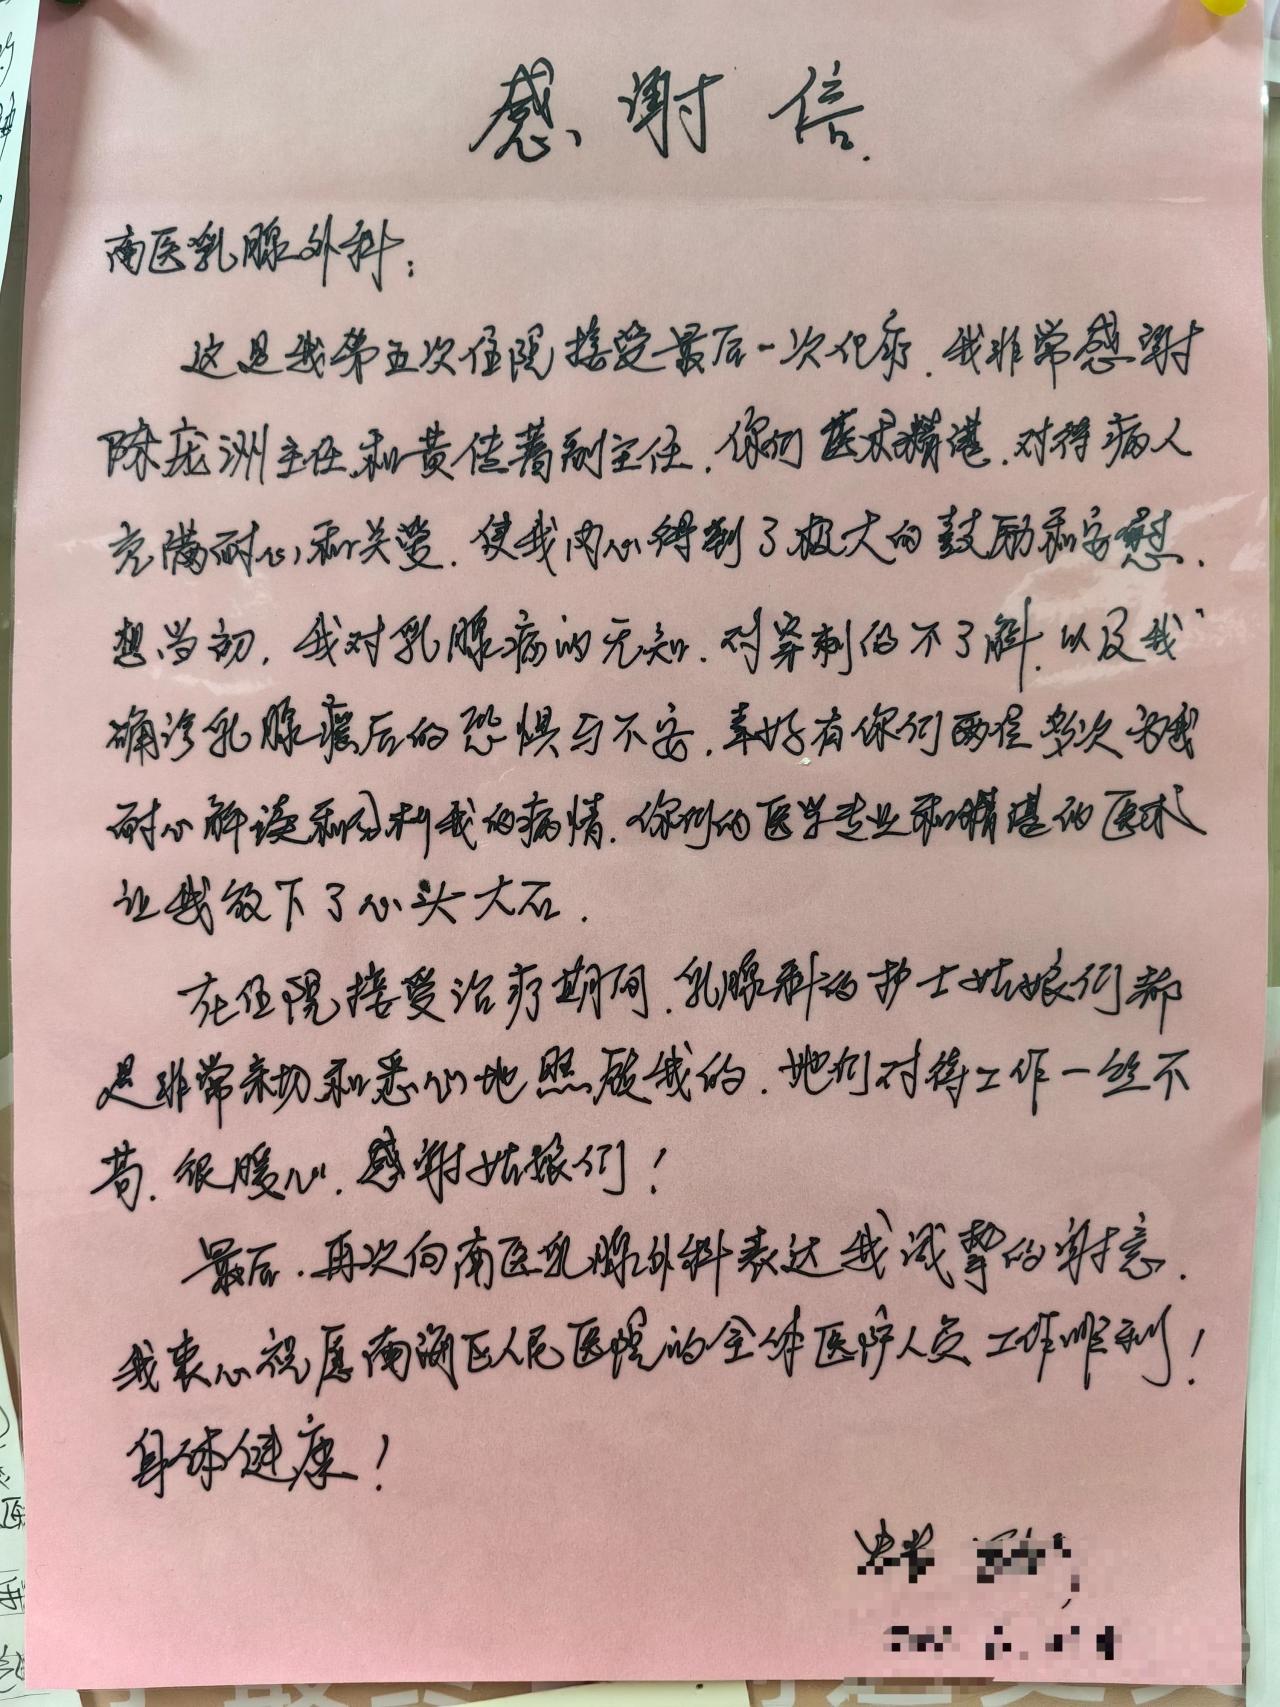 感谢信.
南医乳腺外科:
这是我第五次住院接受最后一次化疗.我非常感谢
陈庞洲主任和黄倩茜副主任.你们医术精湛.对待病人
充满耐心和关爱.使我内心得到了极大的鼓励和安慰.
想当初,我对乳腺病的无知.对穿刺的不了解.以及我
确诊乳腺癌后的恐惧与不安.幸好有你们两位多次为我
耐心解读和分析我的病情.你们的医学专业和精湛的医术
让我放下了心头大石.
在住院接受治疗期间.乳腺科的护士姑娘们都
是非常亲切和悉心地照顾我的.她们对待工作一丝不
苟.很暖心.感谢姑娘们!
最后.再次向南医乳腺外科表达我诚挚的谢意.
我衷心祝愿南海区人民医院的全体医护人员工作顺利!
身体健康!
患者